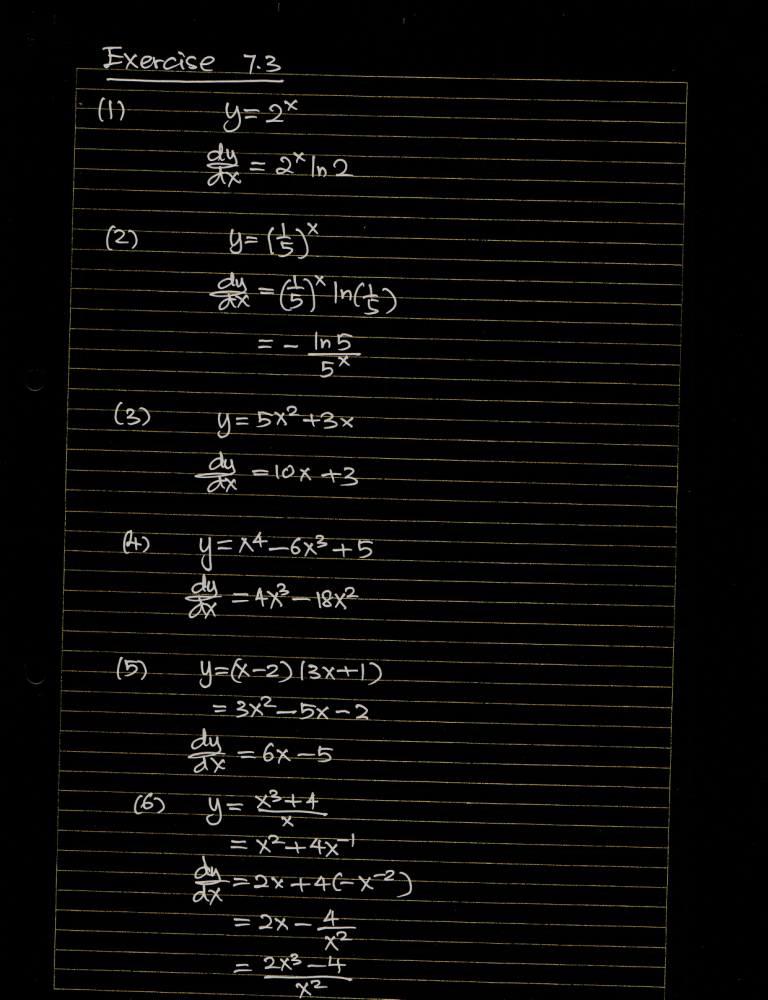 Exercise 7.3
(1) y = 2^x
dy/dx = 2^x ln 2
(2) y = (1/5)^x
dy/dx = (1/5)^x ln(1/5)
= - ln 5 / 5^x
(3) y = 5x² + 3x
dy/dx = 10x + 3
(4) y = x⁴ - 6x³ + 5
dy/dx = 4x³ - 18x²
(5) y = (x-2)(3x+1)
= 3x² - 5x - 2
dy/dx = 6x - 5
(6) y = (x³+4)/x
= x² + 4x⁻¹
dy/dx = 2x + 4(-x⁻²)
= 2x - 4/x²
= (2x³ - 4)/x²